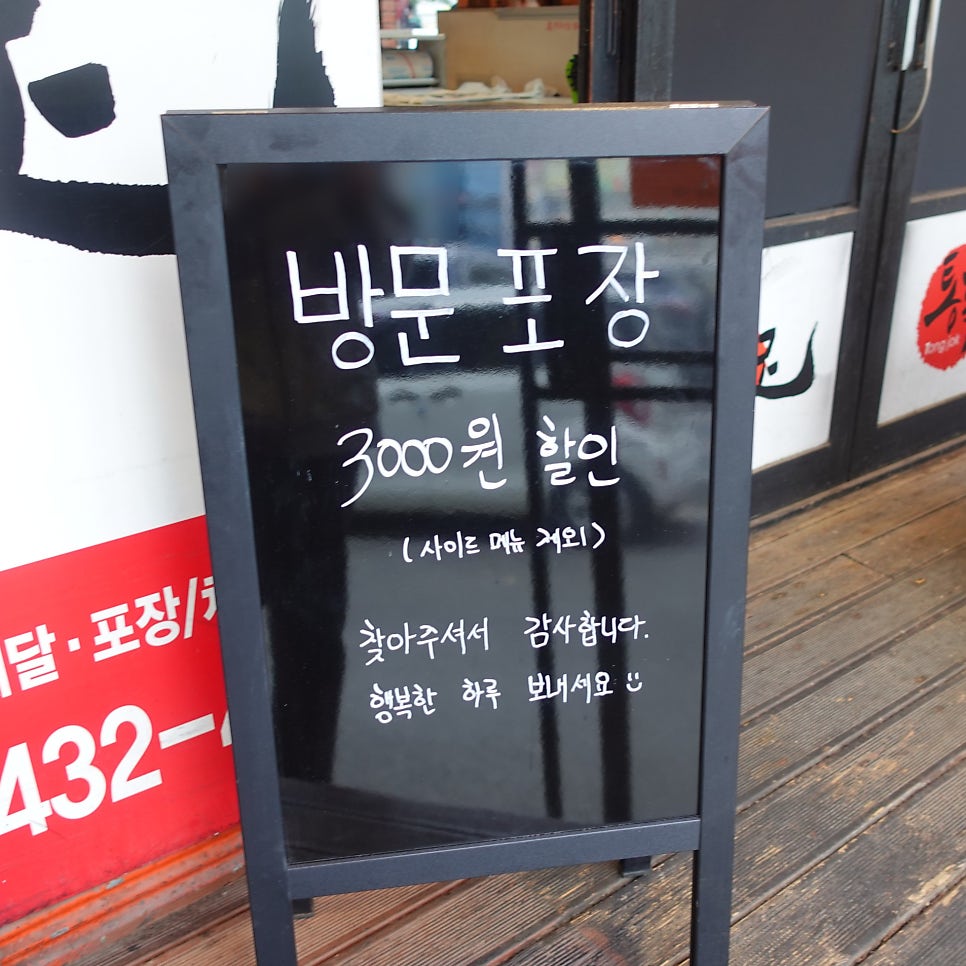 방문 포장
3000원 할인
(사이드 메뉴 제외)
찾아주셔서 감사합니다.
행복한 하루 보내세요
포장/
432-
Tong jok